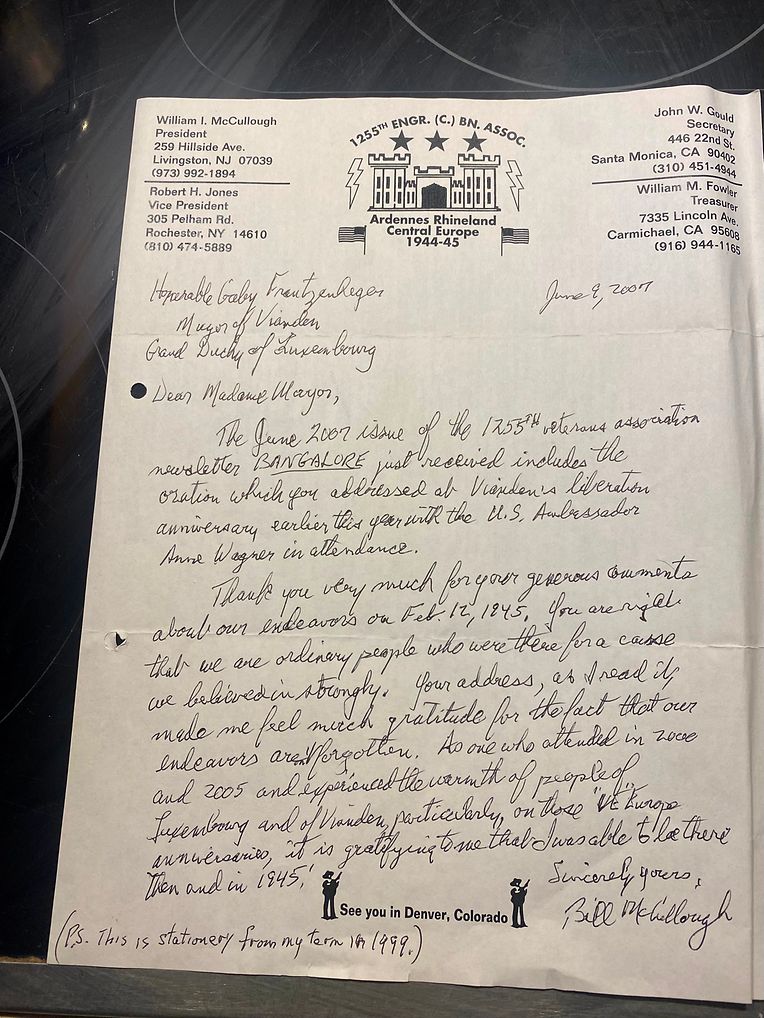 William I. McCullough
President
259 Hillside Ave.
Livingston, NJ 07039
(973) 992-1894
Robert H. Jones
Vice President
305 Pelham Rd.
Rochester, NY 14610
(810) 474-5889
1255TH ENGR. (C.) BN. ASSOC.
Ardennes Rhineland
Central Europe
1944-45
John W. Gould
Secretary
446 22nd St.
Santa Monica, CA 90402
(310) 451-4944
William M. Fowler
Treasurer
7335 Lincoln Ave.
Carmichael, CA 95608
(916) 944-1165
June 9, 2007
Honorable Gaby Frantzen-Heger
Mayor of Vianden
Grand Duchy of Luxembourg
Dear Madame Mayor,
The June 2007 issue of the 1255TH veterans association
newsletter BANGALORE just received includes the
oration which you addressed at Vianden's liberation
anniversary earlier this year with the U.S. Ambassador
Anne Wagner in attendance.
Thank you very much for your generous comments
about our endeavors on Feb. 12, 1945. You are right
that we are ordinary people who were there for a cause
we believed in strongly. Your address, as I read it,
made me feel much gratitude for the fact that our
endeavors aren't forgotten. As one who attended in 2000
and 2005 and experienced the warmth of people of
Luxembourg and of Vianden, particularly, on those "VE" Europe
anniversaries, it is gratifying to me that I was able to be there
then and in 1945!
Sincerely yours,
Bill McCullough
See you in Denver, Colorado
(P.S. This is stationery from my term in 1999.)